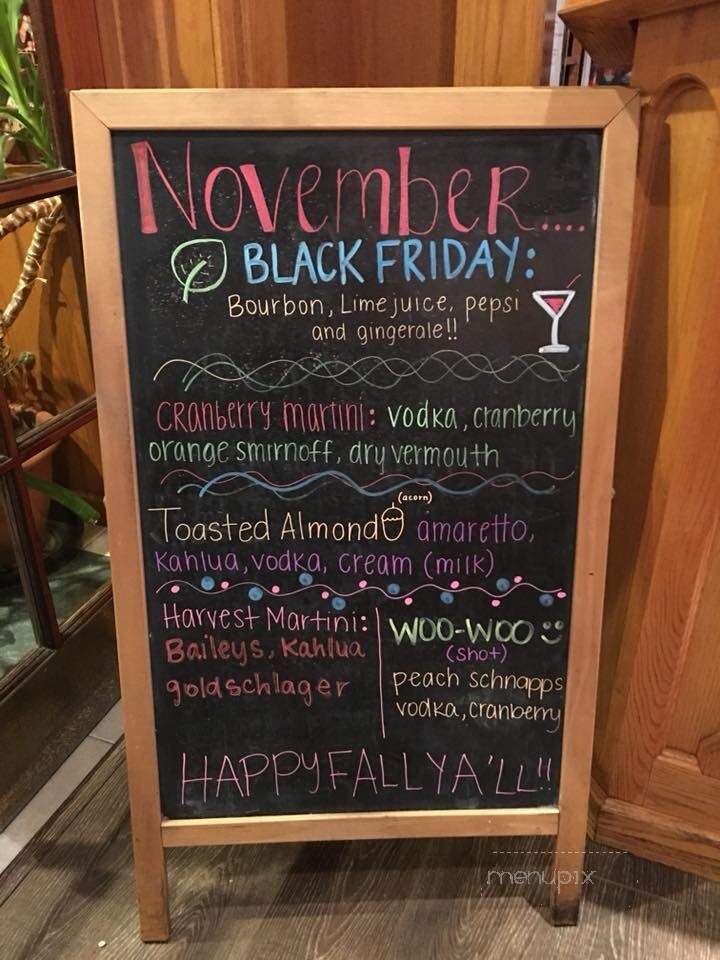 November....
BLACK FRIDAY:
Bourbon, Lime juice, pepsi
and gingerale!!
cranberry martini: vodka, cranberry
orange smirnoff, dry vermouth
(acorn)
Toasted Almond amaretto,
Kahlua, vodka, cream (milk)
Harvest Martini:
Baileys, Kahlua
goldschlager
WOO-WOO
(shot)
peach schnapps
vodka, cranberry
HAPPY FALL YA'LL!!
menupix